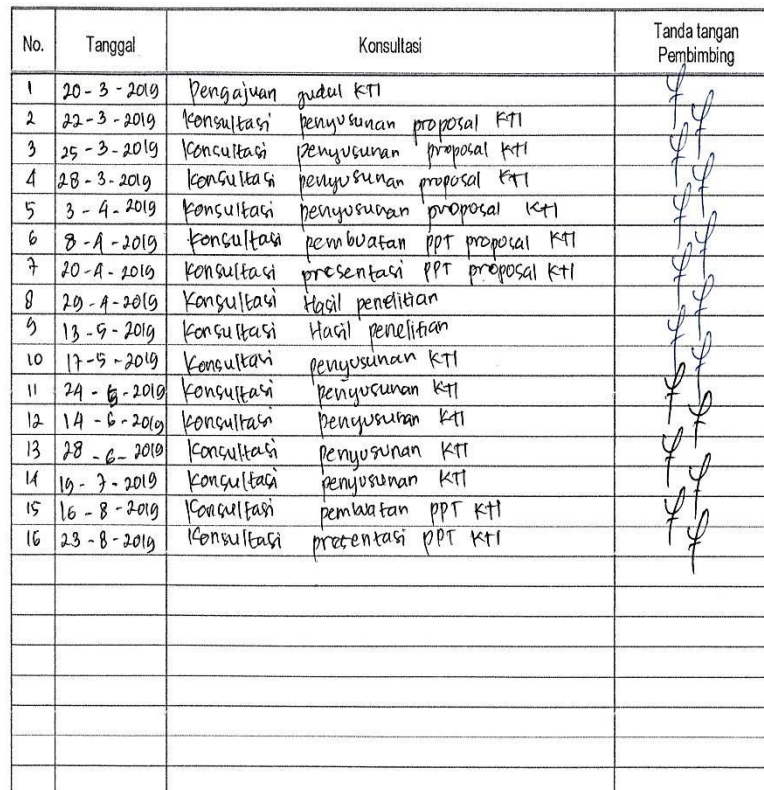 No. Tanggal Konsultasi Tanda tangan Pembimbing
1 20-3-2019 Pengajuan judul KTI
2 22-3-2019 Konsultasi penyusunan proposal KTI
3 25-3-2019 Konsultasi penyusunan proposal KTI
4 28-3-2019 Konsultasi penyusunan proposal KTI
5 3-4-2019 Konsultasi penyusunan proposal KTI
6 8-4-2019 Konsultasi pembuatan PPT proposal KTI
7 20-4-2019 Konsultasi presentasi PPT proposal KTI
8 29-4-2019 Konsultasi Hasil penelitian
9 13-5-2019 Konsultasi Hasil penelitian
10 17-5-2019 Konsultasi penyusunan KTI
11 24-5-2019 Konsultasi penyusunan KTI
12 14-6-2019 Konsultasi penyusunan KTI
13 28-6-2019 Konsultasi penyusunan KTI
14 19-7-2019 Konsultasi penyusunan KTI
15 16-8-2019 Konsultasi pembuatan PPT KTI
16 23-8-2019 Konsultasi presentasi PPT KTI